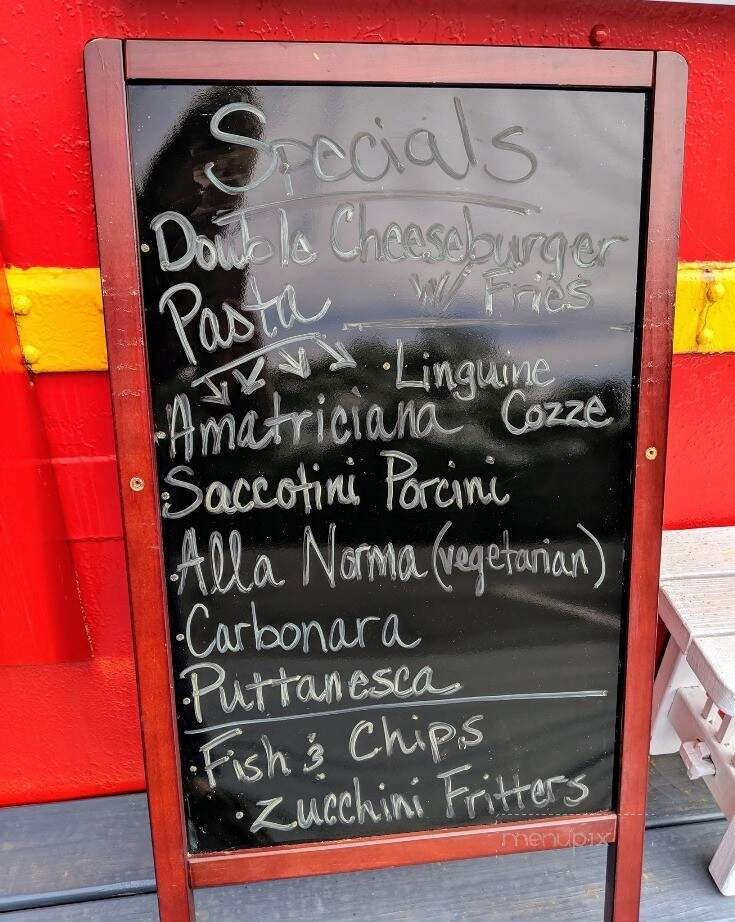 Specials
• Double Cheeseburger
w/ Fries
Pasta
• Linguine
Cozze
• Amatriciana
• Saccotini Porcini
• Alla Norma (vegetarian)
• Carbonara
• Puttanesca
• Fish & Chips
• Zucchini Fritters
menupix